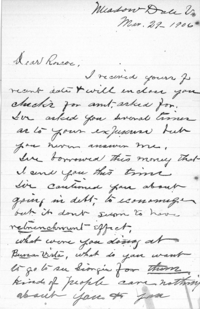 Meadow Dale Va
Mar. 29 1906
Dear Roscoe,
I recived yours of
recent date & will enclose you
check for amt. asked for.
Ive asked you several times
as to your expenses but
you never answer me.
Ive borrowed this money that
I send you this time
Ive cautioned you about
going in debt, to economize
but it dont seem to have
retrenchment effect.
what were you doing at
Buena Vista, what do you want
to go to see for them
kinds of people care nothing
about you &